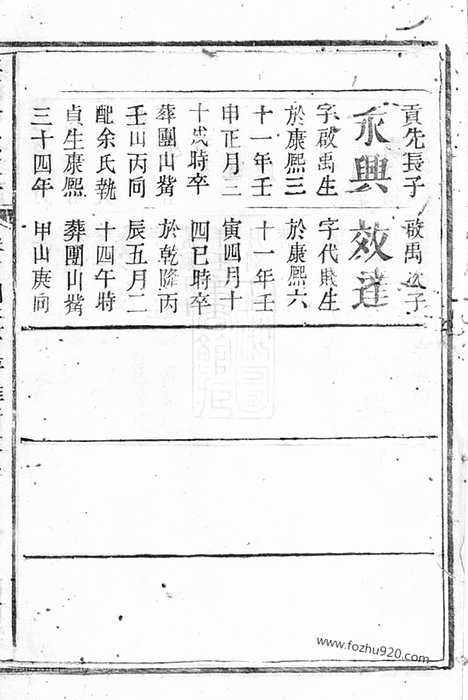 貢先長子
永興
字啟禹生
於康熙三
十一年壬
申正月二
十戌時卒
葬團山觜
壬山丙向
配余氏執
貞生康熙
三十四年
啟禹次子
效達
字代生
於康熙六
十一年壬
寅四月十
四巳時卒
於乾隆丙
辰五月二
十四午時
葬團山觜
甲山庚向
www.fozhu920.com